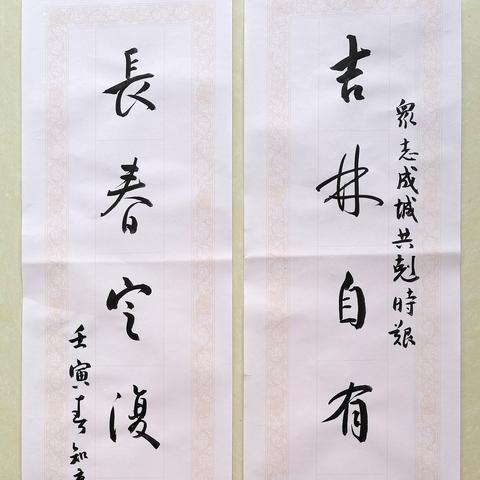 眾志成城共剋時艱
吉林自有
長春定復
壬寅春知